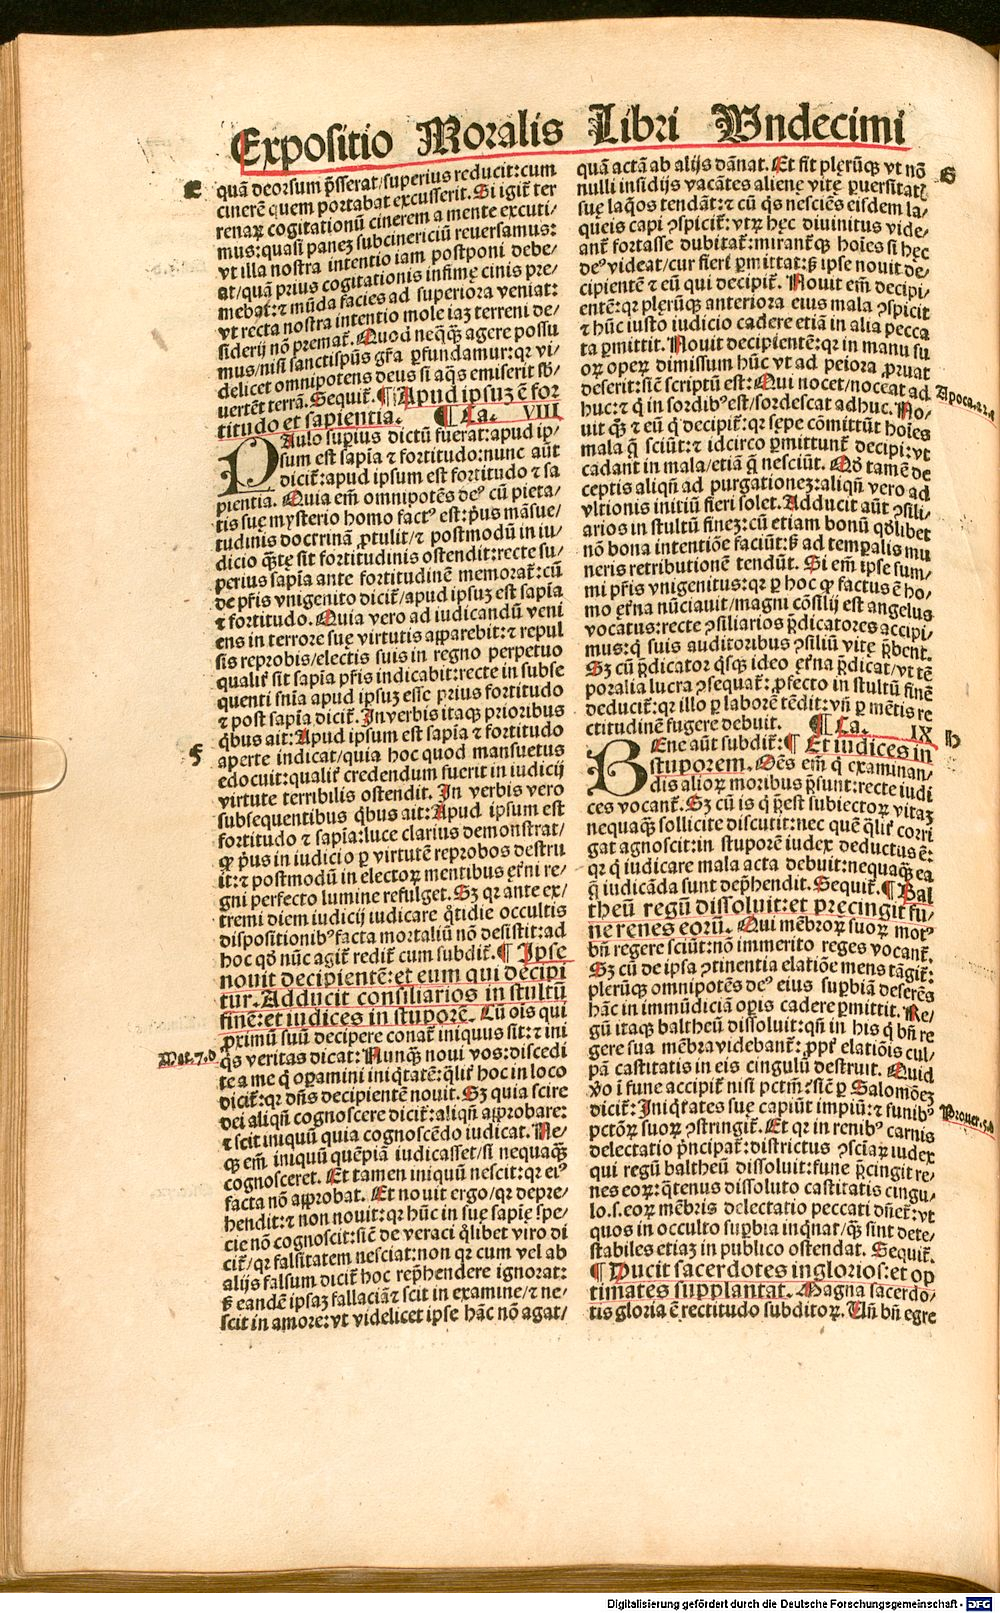 Expositio Moralis Libri Vndecimi
E
quã deorsum p̃sserat/superius reducit:cum
cinerẽ quem portabat excusserit. Si igit̃ ter
renaꝝ cogitationũ cinerem a mente excuti/
mus:quasi paneꝫ subcinericiũ reuersamus:
vt illa nostra intentio iam postponi debe/
at/quã prius cogitationis infimę cinis pre/
mebat:⁊ mũda facies ad superiora veniat:
vt recta nostra intentio mole iaꝫ terreni de/
siderij nõ premat̃. Quod neq̃ꝗ agere possu
mus/nisi sanctispũs gr̃a ꝑfundamur:qꝛ vi/
delicet omnipotens deus si aq̃s emiserit sb̃/
uertẽt terrã. Sequit̃. ¶ Apud ipsuꝫ ẽ for
titudo et sapientia. ¶ Ca. VIII
PAulo suꝑius dictũ fuerat:apud ip/
sum est sapĩa ⁊ fortitudo:nunc aũt
dicit̃:apud ipsum est fortitudo ⁊ sa
pientia. Quia em̃ omnipotẽs deꝰ cũ pieta/
tis suę mysterio homo factꝰ est:p̃us mãsue/
tudinis doctrinã ꝓtulit/⁊ postmodũ in iu/
dicio q̃tę sit fortitudinis ostendit:recte su/
perius sapĩa ante fortitudinẽ memorat̃:cũ
de pr̃is vnigenito dicit̃/apud ipsuꝫ est sapĩa
⁊ fortitudo. Quia vero ad iudicandũ veni
ens in terrore suę virtutis apparebit:⁊ repul
sis reprobis/electis suis in regno perpetuo
qualit̃ sit sapĩa pr̃is indicabit:recte in subse
quenti sñia apud ipsuꝫ esse prius fortitudo
⁊ post sapĩa dicit̃. In verbis itaqꝫ prioribus
q̃bus ait:Apud ipsum est sapĩa ⁊ fortitudo
F
aperte indicat/quia hoc quod mansuetus
edocuit:qualit̃ credendum fuerit in iudicij
virtute terribilis ostendit. In verbis vero
subsequentibus q̃bus ait:Apud ipsum est
fortitudo ⁊ sapĩa:luce clarius demonstrat/
ꝙ p̃us in iudicio ꝑ virtutẽ reprobos destru
it:⁊ postmodũ in electoꝝ mentibus ęt̃ni re/
gni perfecto lumine refulget. Sꝫ qꝛ ante ex/
tremi diem iudicij iudicare q̃tidie occultis
dispositionibꝰ facta mortaliũ nõ desistit:ad
hoc qd̃ nũc agit̃ redit̃ cum subdit̃. ¶ Ipse
nouit decipientẽ:et eum qui decipi
tur. Adducit consiliarios in stultũ
finẽ:et iudices in stuporẽ. Cũ ois qui
ꝓximũ suũ decipere conat̃ iniquus sit:⁊ ini
Mat.7.d
q̃s veritas dicat:Nunqꝗ noui vos:discedi
te a me q̃ oꝑamini iniq̃tatẽ:q̃lit̃ hoc in loco
dicit̃:qꝛ dñs decipientẽ nouit. Sꝫ quia scire
dei aliqñ cognoscere dicit̃:aliqñ approbare:
⁊ scit iniquũ quia cognoscẽdo iudicat. Ne/
qꝫ em̃ iniquũ quẽpiã iudicasset/si nequaq̃ꝫ
cognosceret. Et tamen iniquũ nescit:qꝛ eiꝰ
facta nõ approbat. Et nouit ergo/qꝛ depre/
hendit:⁊ non nouit:qꝛ hũc in suę sapię spe/
cie nõ cognoscit:sic̃ de veraci q̃libet viro di
cit̃/qꝛ falsitatem nesciat:non qꝛ cum vel ab
alijs falsum dicit̃ hoc rep̃hendere ignorat:
ß eandẽ ipsaꝫ fallaciã⁊ scit in examine/⁊ ne/
scit in amore:vt videlicet ipse hãc nõ agat/
quã actã ab alijs dãnat. Et fit plęrũqꝫ vt nõ
G
nulli insidijs vacãtes alienę vitę ꝑuersitatꝭ
suę laq̃os tendãt:⁊ cũ q̃s nesciẽs eisdem la/
queis capi ꝯspicit̃:vtꝝ hęc diuinitus vide/
ant̃ fortasse dubitat̃:mirant̃qꝫ hoĩes si hęc
deꝰ videat/cur fieri ꝑmittat:ß ipse nouit de/
cipientẽ ⁊ eũ qui decipit̃. Nouit em̃ decipi/
entẽ:qꝛ plęrũqꝫ anteriora eius mala ꝯspicit
⁊ hũc iusto iudicio cadere etiã in alia pecca
ta ꝑmittit. Nouit decipientẽ:qꝛ in manu su
oꝝ operꝫ dimissum hũc vt ad peiora ꝓruat
deserit:sic̃ scriptũ est:Qui nocet/noceat ad
Apoca.22.c
huc:⁊ q̃ in sordibꝰ est/sordescat adhuc. No/
uit qꝫ ⁊ eũ q̃ decipit̃:qꝛ sępe cõmittũt hoĩes
mala q̃ sciũt:⁊ idcirco ꝑmittunt̃ decipi:vt
cadant in mala/etiã q̃ nesciũt. Qd̃ tamẽ de
ceptis aliqñ ad purgationeꝫ:aliqñ vero ad
vltionis initiũ fieri solet. Adducit aũt ꝯsili/
arios in stultũ fineꝫ:cũ etiam bonũ qd̃libet
nõ bona intentiõe faciũt:ß ad temꝑalis mu
neris retributionẽ tendũt. Si em̃ ipse sum/
mi pr̃is vnigenitus:qꝛ ꝑ hoc ꝙ factus ẽ ho/
mo ęt̃na nũciauit/magni cõsilij est angelus
vocatus:recte ꝯsiliarios p̃dicatores accipi/
mus:q̃ suis auditoribus ꝯsiliũ vitę p̃bent.
Sꝫ cũ p̃dicator q̃sqꝫ ideo ęt̃na p̃dicat/vt tẽ
poralia lucra ꝯsequat̃:ꝓfecto in stultũ finẽ
deducit̃:qꝛ illo ꝑ laborẽ tẽdit:vñ ꝑ mẽtis re
ctitudinẽ fugere debuit. ¶ Ca. IX
H
BEne aũt subdit̃:¶ Et iudices in
stuporem. Oẽs em̃ q̃ examinan/
dis alioꝝ moribus p̃sunt:recte iudi
ces vocant̃. Sꝫ cũ is q̃ p̃est subiectoꝝ vitaꝫ
nequaq̃ꝫ sollicite discutit:nec quẽ q̃lit̃ corri
gat agnoscit:in stuporẽ iudex deductus ẽ:
qꝛ q̃ iudicare mala acta debuit:nequaq̃ꝫ ea
q̃ iudicãda sunt dep̃hendit. Sequit̃. ¶ Bal
theũ regũ dissoluit:et precingit fu/
ne renes eorũ. Qui mẽbroꝝ suoꝝ motꝰ
bñ regere sciũt:nõ immerito reges vocant̃.
Sꝫ cũ de ipsa ꝯtinentia elatiõe mens tãgit̃:
plerũqꝫ omnipotẽs deꝰ eius suꝑbiã deserẽs
hãc in immũdiciã oꝑis cadere ꝑmittit. Re/
gũ itaqꝫ baltheũ dissoluit:qñ in his q̃ bñ re
gere sua mẽbra videbant̃:ꝓpt̃ elatiõis cul/
pã castitatis in eis cingulũ destruit. Quid
ṽo ĩ fune accipit̃ nisi pctm̃?sic̃ ꝑ Salomõeꝫ
dicit̃:Iniq̃tates suę capiũt impiũ:⁊ funibꝰ
Prouer.5.d
pctõꝝ suoꝝ ꝯstringit̃. Et qꝛ in renibꝰ carnis
delectatio p̃ncipat̃:districtus ꝯsciaꝝ iudex
qui regũ baltheũ dissoluit:fune p̃cingit re/
nes eoꝝ:q̃tenus dissoluto castitatis cingu/
lo.s.eoꝝ mẽbris delectatio peccati dñet̃:vt
quos in occulto suꝑbia inq̃nat/q̃ꝫ sint dete/
stabiles etiaꝫ in publico ostendat. Sequit̃.
¶ Ducit sacerdotes inglorios:et op
timates supplantat. Magna sacerdo/
tis gloria ẽ rectitudo subditoꝝ. Vñ bñ egre
Digitalisierung gefördert durch die Deutsche Forschungsgemeinschaft - DFG